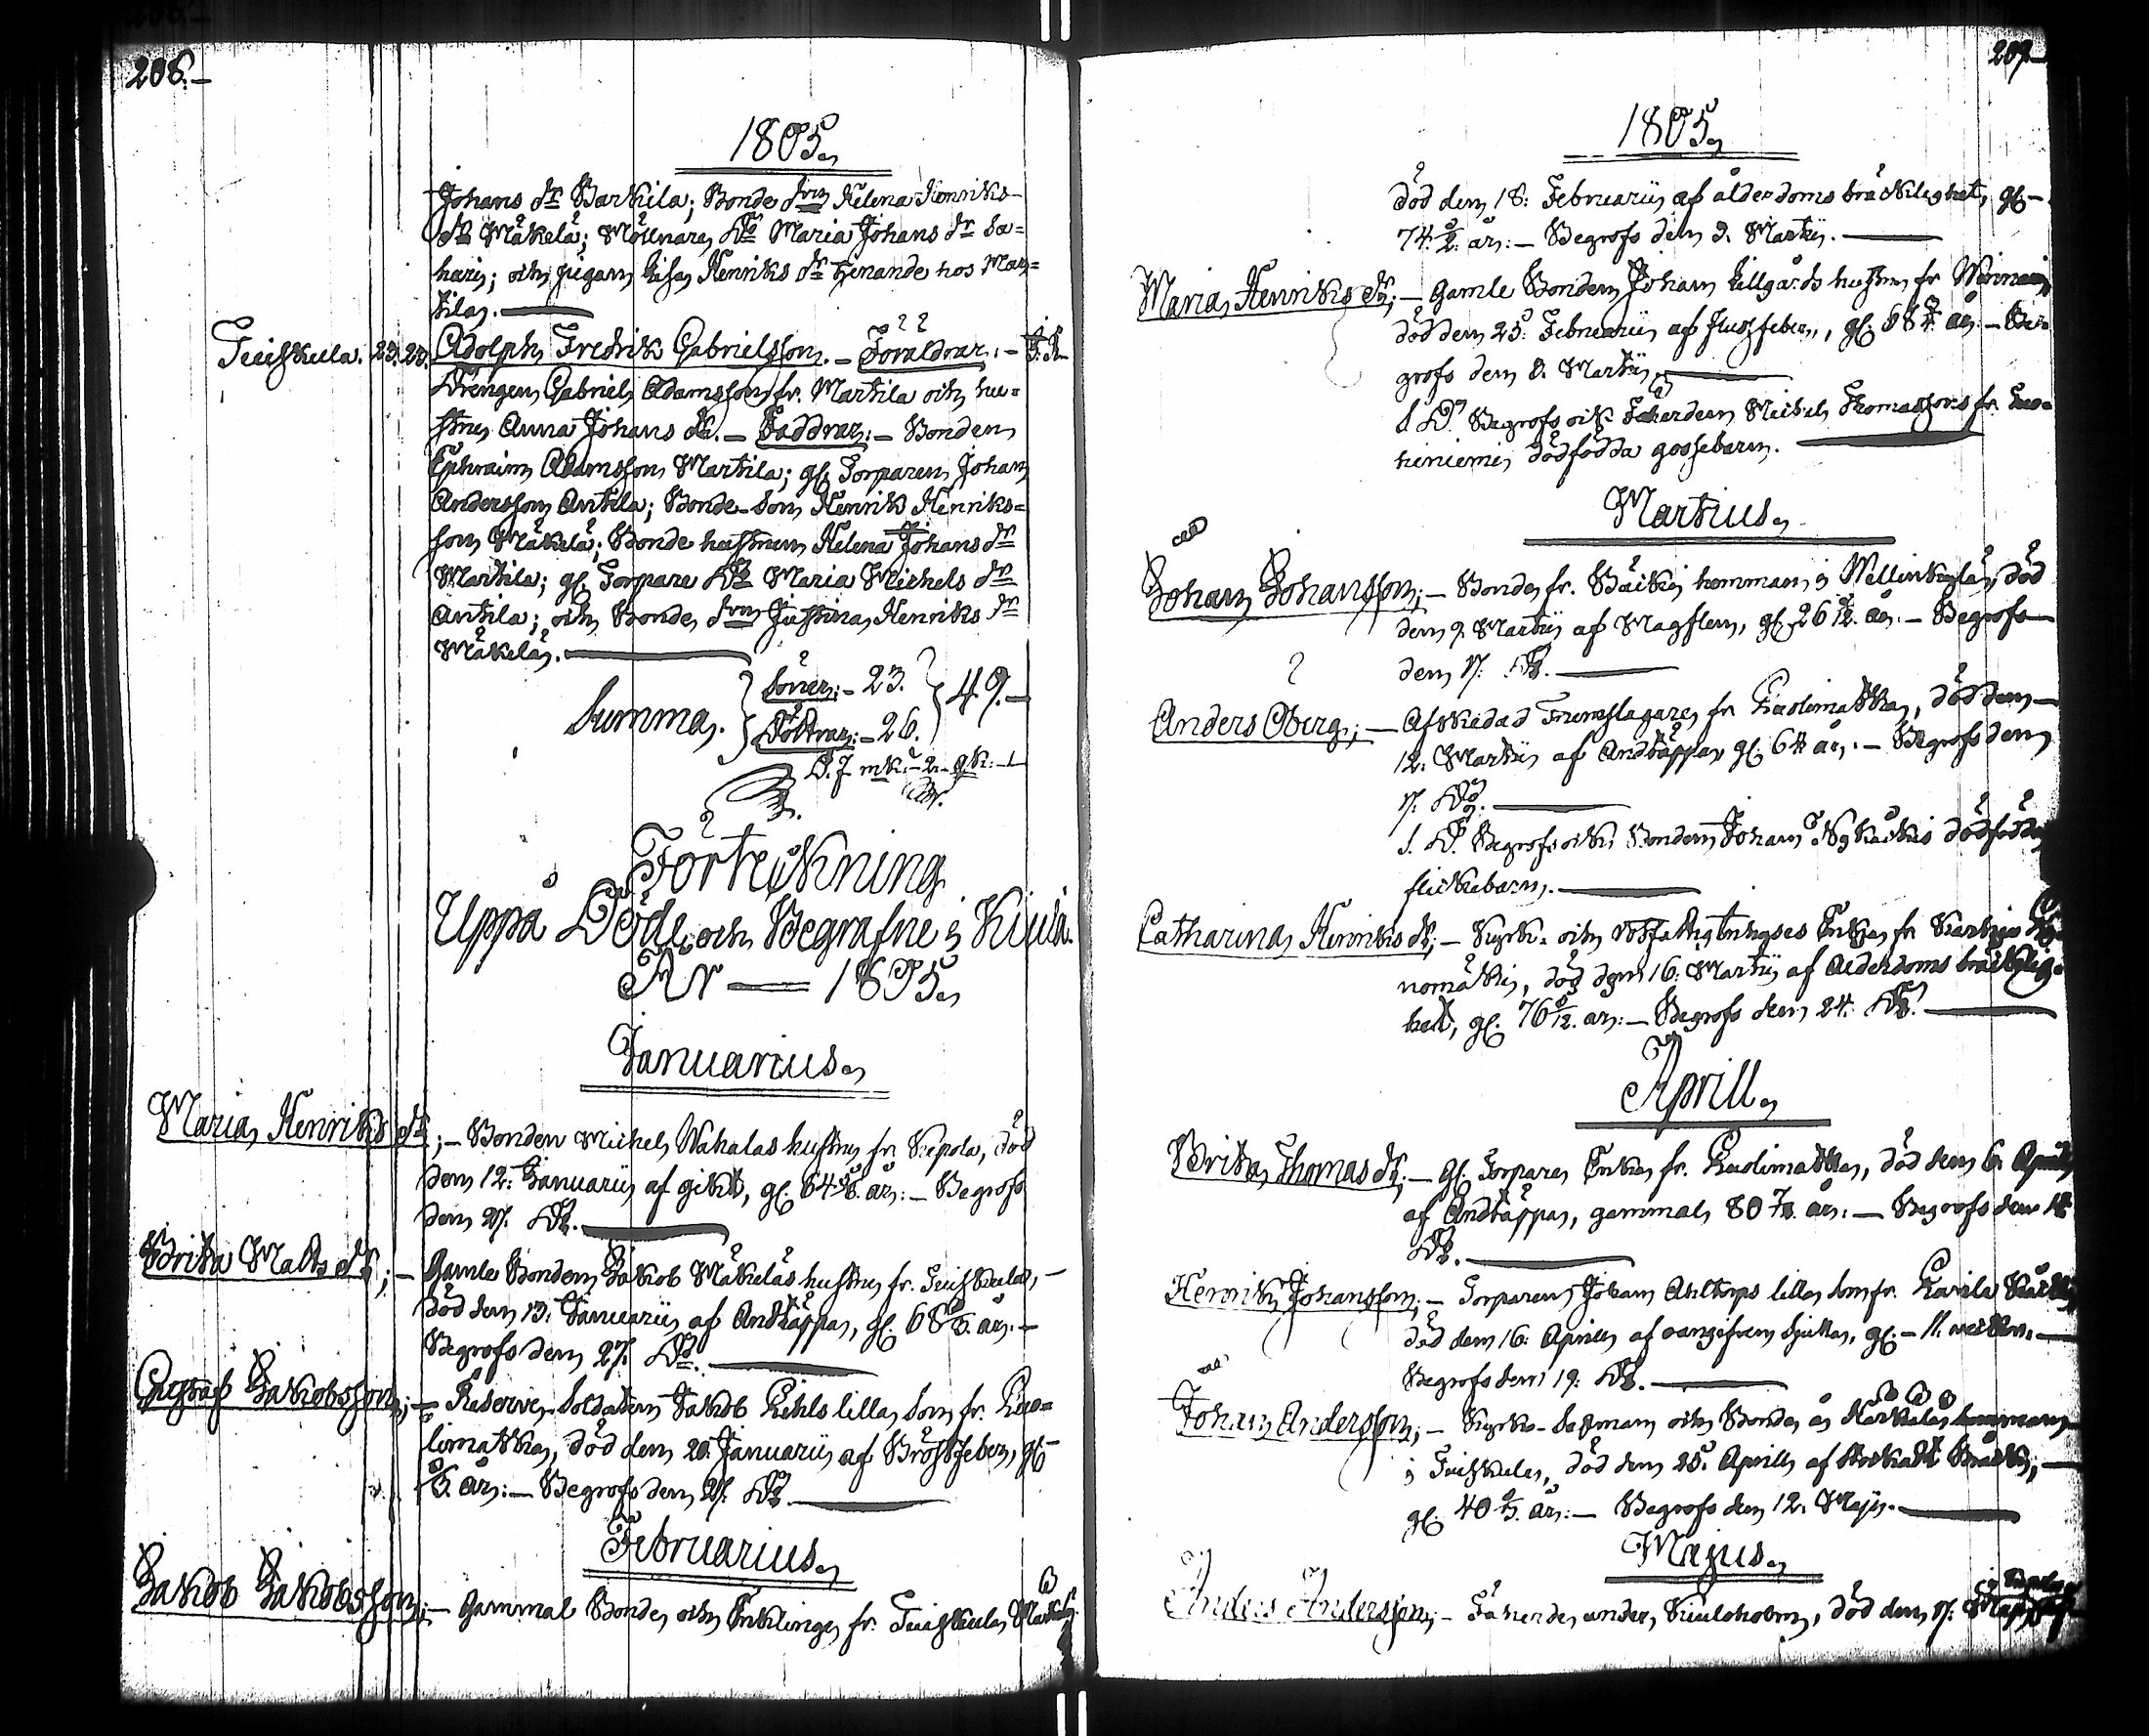 208.
1805.
Johans dr Barkila; Bonde drn Helena Henriks-
dr Mäkelä; Möllnare Do Maria Johans dr Sa=
hari; och pigan Lisa Henriks dr tjenande hos Mar=
tila.
Tuiskula. 23. 23. Adolph Fredrik Gabrielsson. - Föräldrar: -
Drengen Gabriel Adamsson fr. Martila och hu=
strun Anna Johans dr. - Faddrar: - Bonden
Ephraim Adamsson Martila; gl. Torparen Johan
Andersson Antila; Bonde-Son Henrik Henriks=
son Mäkelä; Bonde hustrun Helena Johans dr
Martila; gl. Torpare Do Maria Michels dr
Antila; och Bonde drn Justina Henriks dr
Mäkelä.
Summa. Söner: - 23. 49.
Döttrar: - 26.
D. f. mk. - 2. - qk: - 1
Förteckning
Uppå Döde och Begrafne i Kiula
År 1805.
Januarius.
Maria Henriks dr; - Bonden Michel Wahalas hustru fr. Kepola, död
den 12. Januarii af gikt, gl. 64 år: - Begrofs
den 27. Do.
Brita Matts dr; - Gamle Bonden Jakob Mäkeläs hustru fr. Tuiskula, -
död den 13. Januarii af Andtäppa, gl. 68 år: -
Begrofs den 27. Do.
Gustaf Jakobsson; - Reserve-Soldaten Jakob Kihls lilla Son fr. Kuo=
limatka, död den 20. Januarii af Bröstfeber, gl -
år: - Begrofs den 27. Do.
Februarius.
Jakob Jakobsson; - Gammal Bonde och Enkling fr. Tuiskula Mäkelä,
207
1805.
död den 18: Februarii af ålderdoms bräcklighet, gl -
74 år: - Begrofs den 3. Martii.
Maria Henriks dr; - Gamle Bonden Johan Lillgårds hustru fr.
död den 25: Februarii af flussfeber, gl. 68 år: - Be=
grofs den 3. Martii.
S. D. Begrofs ock Fäherden Michel Thomassons fr.
hiniemi dödfödda gossebarn.
Martius.
Johan Johansson; - Bonde fr. Bäcki hemman i Wellinkylä, död
den 9. Martii af Magflen, gl. 26 år. - Begrofs
den 17: Do.
Anders Öberg; - Afskedad Trumslagare fr. Kuolimatka, död den
12. Martii af Andtäppa gl. 64 år. - Begrofs den
17. Do.
S. D. Begrofs ock Bonden Johan Nykäckis dödfödda
flickebarn.
Catharina Henriks dr; - Kyrk- och Enka fr.
nomäki, död den 16: Martii af ålderdoms bräcklig=
het, gl. 76 år: - Begrofs den 24. Do.
Aprill.
Brita Thomas dr; - gl. Torpare Enka fr. Kuolimatka, död den 6. Aprill
af Andtäppa, gammal 80 år: - Begrofs den 14
Do.
Henrik Johansson; - Torparen Johan Ahltorps lilla Son fr.
död den 16: Aprill af oangifven sjuka, gl. - 11. veckor. -
Begrofs den 19: Do.
Johan Andersson; - Kyrko-Sexman och Bonde å Härkälä hemman
i Tuiskula, död den 25. Aprill af
gl. 40 år: - Begrofs den 12. Maji.
Majus.
Anders Andersson; - Fäherde under Kiuloholm, död den 17.